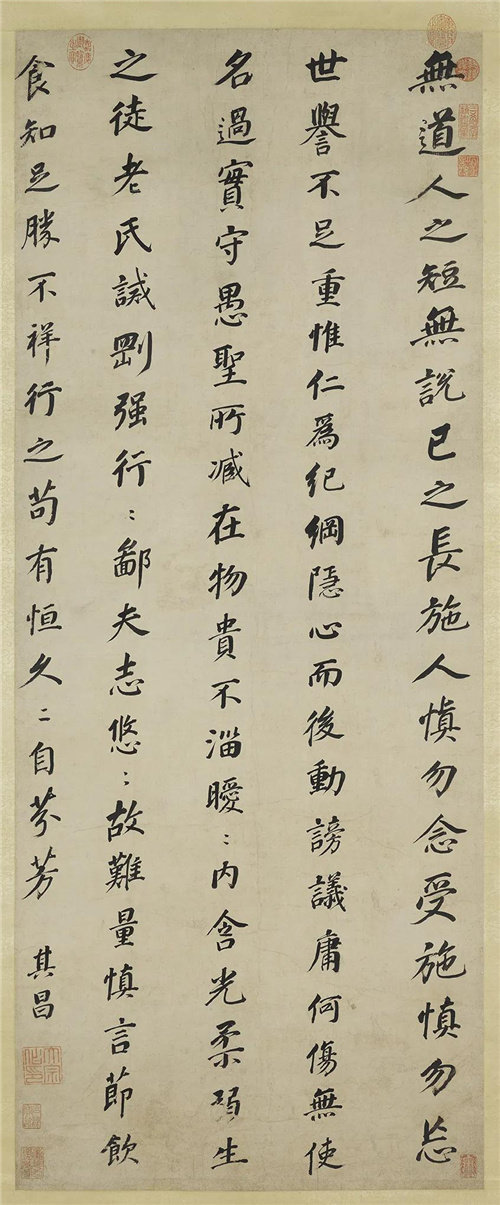 無道人之短無說己之長施人慎勿念受施慎勿忘
世譽不足重惟仁爲紀綱隱心而後動謗議庸何傷無使
名過實守愚聖所臧在物貴不淄曖〻內含光柔弱生
之徒老氏誡剛强行〻鄙夫志悠〻故難量慎言節飲
食知足勝不祥行之苟有恒久〻自芬芳 其昌